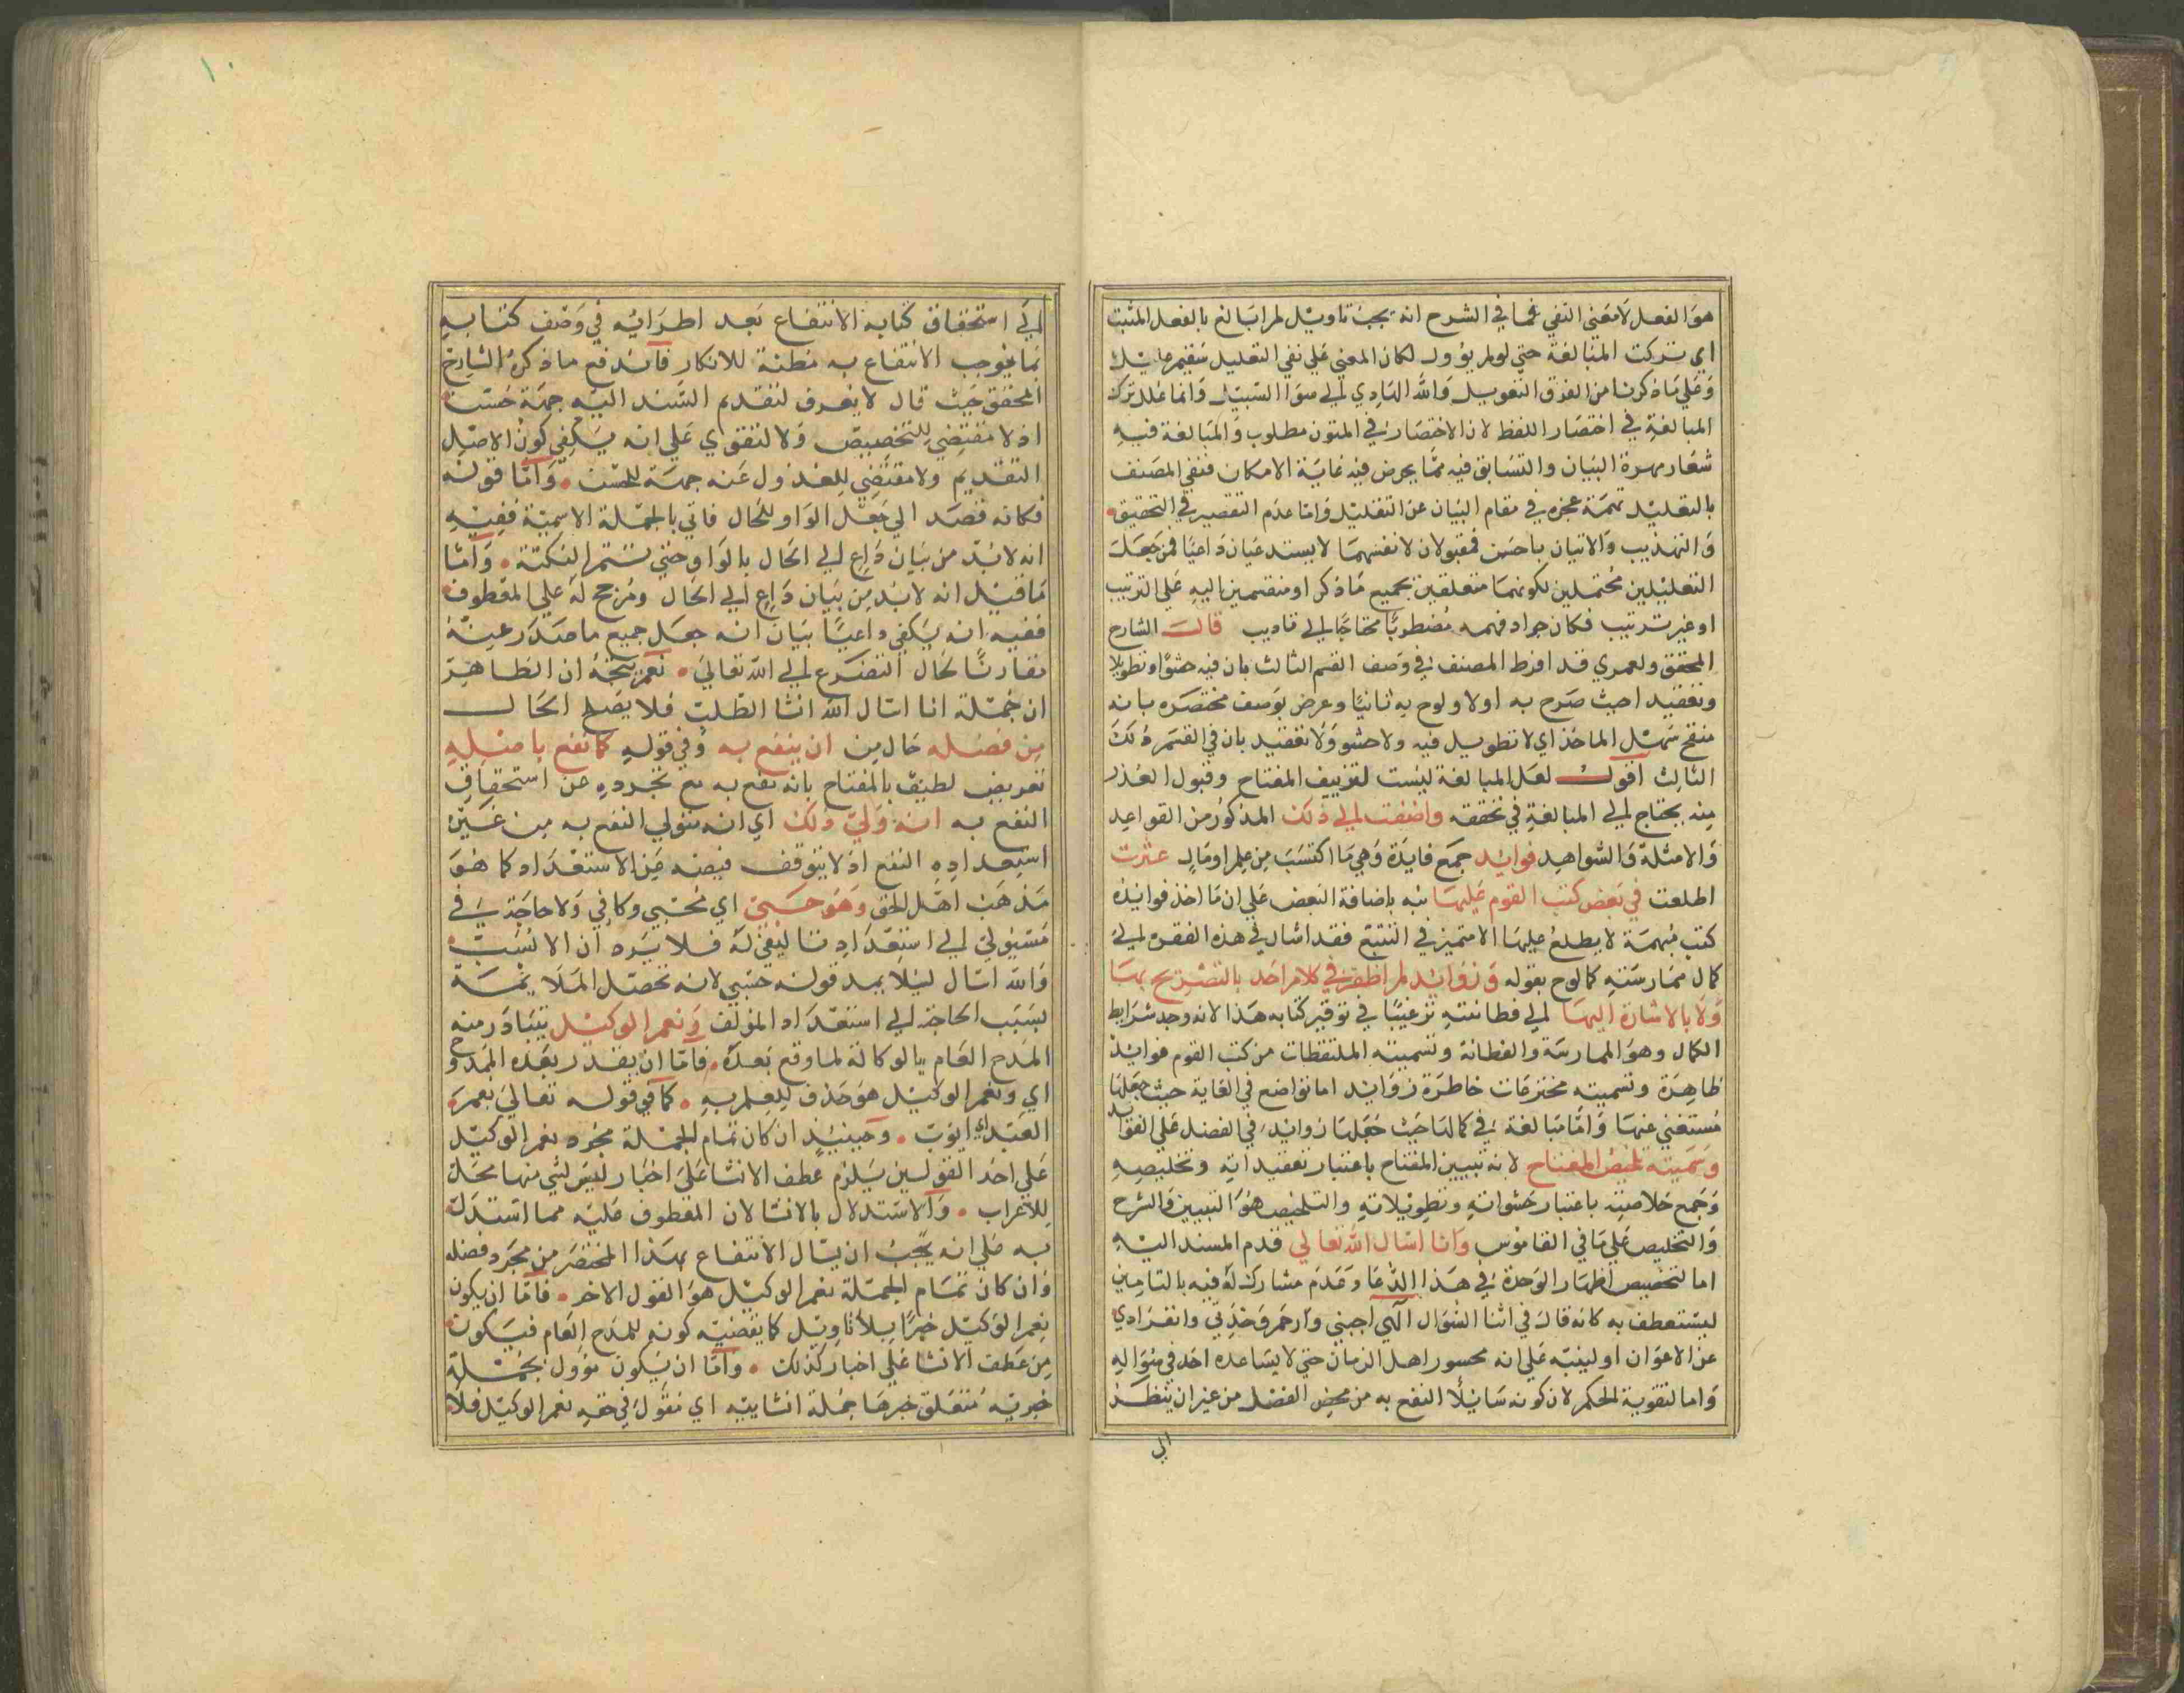 هو الفعل لا معني النفي فما في الشرح انه يجب تاويل لم ابالغ بالفعل المثبت
اي تركت المبالغة حتي لو لم يؤول لكان المعني علي نفي التعليل
وعلي ما ذكرنا من الفرق التعويل والله الهادي الي سوا السبيل وانما علل ترك
المبالغة في اختصار اللفظ لان الاختصار في المتون مطلوب والمبالغة فيه
شعار مهرة البيان والتسابق فيه مما يحرض فيه غاية الامكان فنفي المصنف
بالتعليل تهمة عجزه في مقام البيان عن التقليل واما عدم التقصير في التحقيق
والتهذيب والاتيان باحسن فمقبولان لانفسهما لا يستدعيان داعيا فمن جعل
التعليلين محتملين لكونهما متعلقين بجميع ما ذكر او منقسمين اليه علي الترتيب
او غير ترتيب فكان جواد فهمه مضطربا محتاجا الي تاديب قال الشارح
المحقق ولعمري قد افرط المصنف في وصف القسم الثالث بان فيه حشوا وتطويلا
وتعقيدا حيث صرح به اولا ولوح به ثانيا وعرض بوصف مختصره بانه
منقح سهل الماخذ اي لا تطويل فيه ولا حشو ولا تعقيد بان في القسم ذلك
الثالث اقول لعل المبالغة ليست لتزييف المفتاح وقبول العذر
منه يحتاج الي المبالغة في تحققه واضفت الي ذلك المذكور من القواعد
والامثلة والشواهد فوايد جمع فايدة وهي ما اكتسب من علم او مال عثرت
اطلعت في بعض كتب القوم عليها نبه باضافة البعض علي ان ما اخذ فوايده
كتب مبهمة لا يطلع عليها الا متميز في التتبع فقد اشار في هذه الفقرة الي
كمال ممارسته كما لوح بقوله وزوايد لم اظفر في كلام احد بالتصريح بها
ولا بالاشارة اليها الي فطانته ترغيبا في توقير كتابه هذا لانه وجد شرايط
الكمال وهو الممارسة والفطانة وتسميته الملتقطات من كتب القوم فوايد
ظاهرة وتسميته مخترعات خاطره زوايد اما تواضع في الغاية حيث جعلها
مستغني عنها واما مبالغة في كمالها حيث جعلها زوايد في الفضل علي الفوايد
وسميته تلخيص المفتاح لانه تبيين المفتاح باعتبار تعقيداته وتخليصه
وجمع خلاصته باعتبار حشواته وتطويلاته والتلخيص هو التبيين والشرح
والتخليص علي ما في القاموس وانا اسال الله تعالي قدم المسند اليه
اما لتخصيص اظهار الوحدة في هذا الدعا وعدم مشارك له فيه بالتامين
ليستعطف به كانه قال في اثنا السؤال الهي اجبني وارحم وحدتي وانفرادي
عن الاعوان او لينبه علي انه محسور اهل الزمان حتي لا يساعده احد في سؤاله
واما لتقوية الحكم لان كونه سايلا النفع به من محض الفضل من غير ان ينظر
الي
الي استحقاق كتابه الانتفاع بعد اطرائه في وصف كتابه
بما يوجب الانتفاع به مظنة للانكار فاندفع ما ذكره الشارح
المحقق حيث قال لا يعرف لتقديم المسند اليه جهة حسن
اذ لا مقتضي للتخصيص ولا لتقوي علي انه يكفي كون الاصل
التقديم ولا مقتضي للعدول عنه جهة للحسن وامّا قوله
فكانه قصد الي جعل الواو للحال فاتي بالجملة الاسمية ففيه
انه لا بد من بيان داع الي الحال بالواو حتي تتم النكتة وامّا
ما قيل انه لا بد من بيان داع الي الحال ومرجح له علي العطوف
ففيه انه يكفي داعيا بيان انه جعل جميع ما صدر عنه
مقارنا لحال التضرع الي الله تعالي نعم يتجه ان الظاهر
ان جملة انا اسال الله انشا الطلب فلا يصلح الحال
من فضله حال من ان ينفع به وفي قوله كما نفع باصله
تعريض لطيف بالمفتاح بانه نفع به مع تجرده عن استحقاق
النفع به انه ولي ذلك اي انه متولي النفع به من غير
استعداده النفع اذ لا يتوقف فيضه عن الاستعداد كما هو
مذهب اهل الحق وهو حسبي اي محسبي وكافي ولا حاجة في
مسئولي الي استعداد ما ليفي له فلا يرد ان الانسب
والله اسال ليلا يمد قوله حسبي لانه تحصل الملايمة
بسبب الحاجة الي استعداد المؤلف ونعم الوكيل يتبادر منه
المدح العام بالوكالة لما وقع بعده فامّا ان يقدر بعده الممدوح
اي ونعم الوكيل هو حذف للعلم به كما في قوله تعالي نعم
العبد اي ايوب وحينيذ ان كان تمام الجملة مجرد نعم الوكيل
علي احد القولين يلزم عطف الانشا علي اخبار ليس لشي منها محل
للاعراب والاستدلال بالانشا لان المعطوف عليه مما استدل
به علي انه يجب ان يسال الانتفاع بهذا المختصر من مجرد فضله
وان كان تمام الجملة نعم الوكيل هو القول الاخر فامّا ان يكون
نعم الوكيل خبرا بلا تاويل كما يقضيه كونه للمدح العام فيكون
من عطف الانشا علي اخبار كذلك وامّا ان يكون مؤول بجملة
خبرية متعلق خبرها جملة انشاييه اي مقول في حقه نعم الوكيل فلا